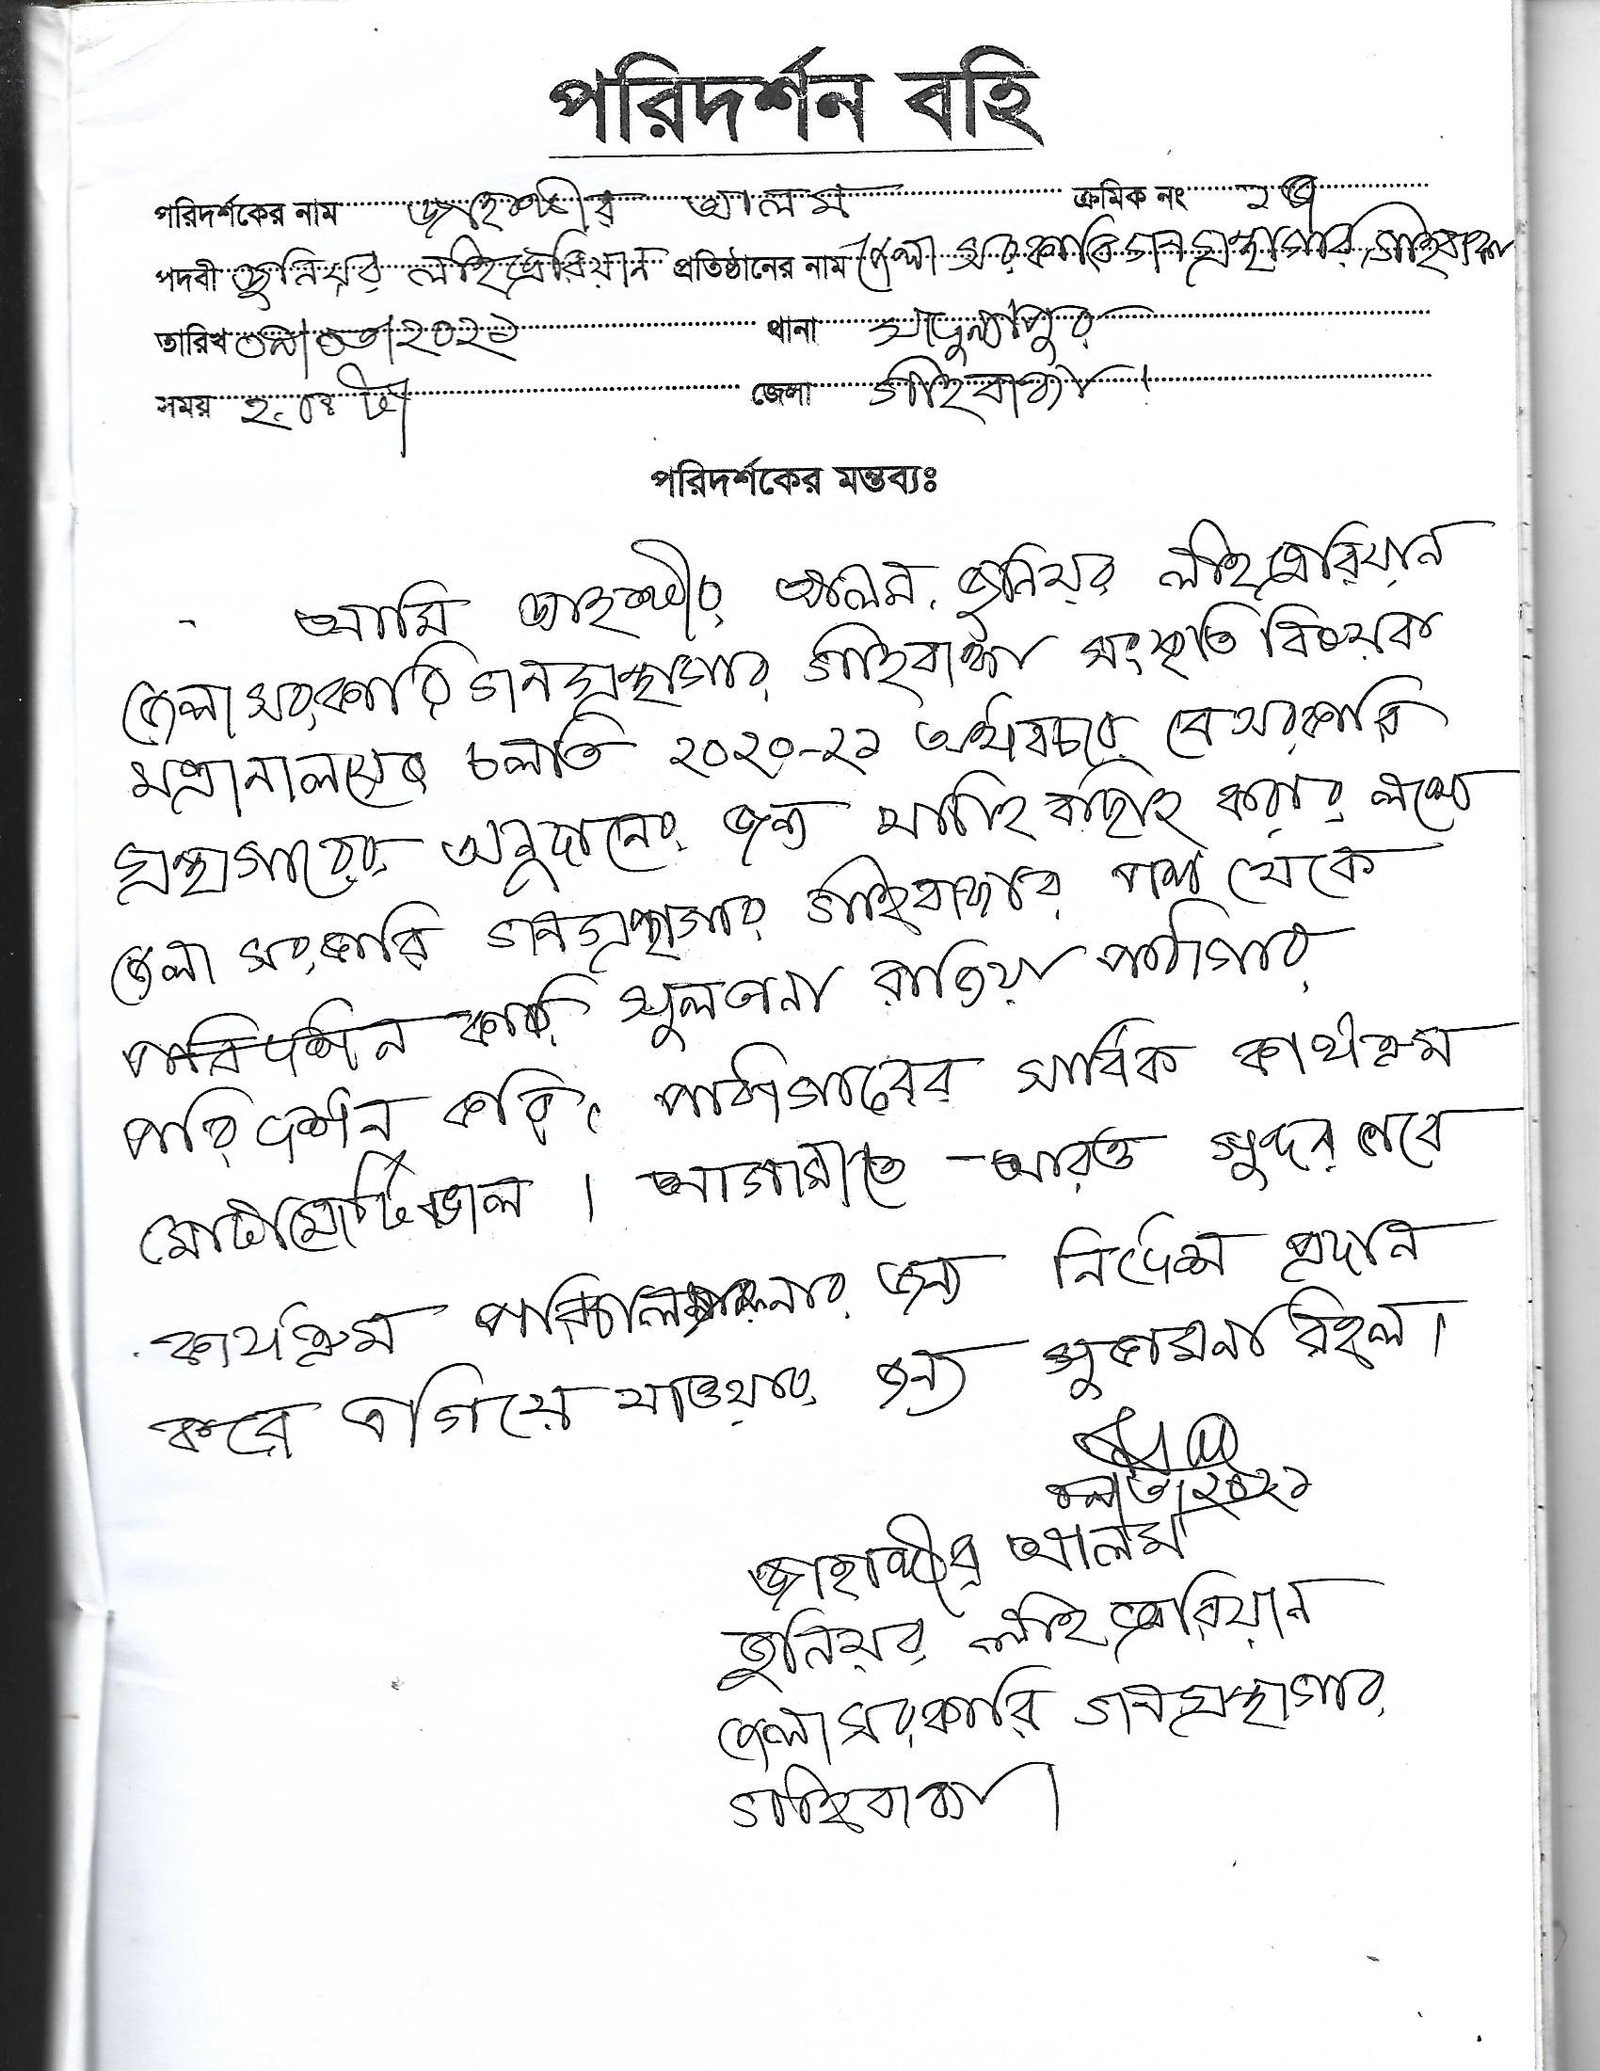 পরিদর্শন বহি
পরিদর্শকের নাম জাহাঙ্গীর আলম ক্রমিক নং
পদবী জুনিয়র লাইব্রেরিয়ান প্রতিষ্ঠানের নাম জেলা সরকারি গনগ্রন্থাগার, গাইবান্ধা
তারিখ থানা সাদুল্যাপুর
সময় জেলা গাইবান্ধা।
পরিদর্শকের মন্তব্যঃ
আমি জাহাঙ্গীর আলম, জুনিয়র লাইব্রেরিয়ান
জেলা সরকারি গনগ্রন্থাগার, গাইবান্ধা সংস্কৃতি বিষয়ক
মন্ত্রানালয়ের চলতি ২০২০-২১ অর্থবছরে বেসরকারি
গ্রন্থাগারের অনুদানের জন্য যাচাই বাছাই করার লক্ষে
জেলা সরকারি গনগ্রন্থাগার গাইবান্ধার পক্ষ থেকে
পরিদর্শন করি রাজিয়া পাঠাগার
পরিদর্শন করি। পাঠাগারের সার্বিক কার্যক্রম
মোটামোটি ভাল। আগামীতে আরও সুন্দর ভাবে
কার্যক্রম পরিচালনার জন্য নির্দেশ প্রদান
করে এগিয়ে যাওয়ার জন্য শুভকামনা রইল।
২০২১
জাহাঙ্গীর আলম
জুনিয়র লাইব্রেরিয়ান
জেলা সরকারি গনগ্রন্থাগার,
গাইবান্ধা।